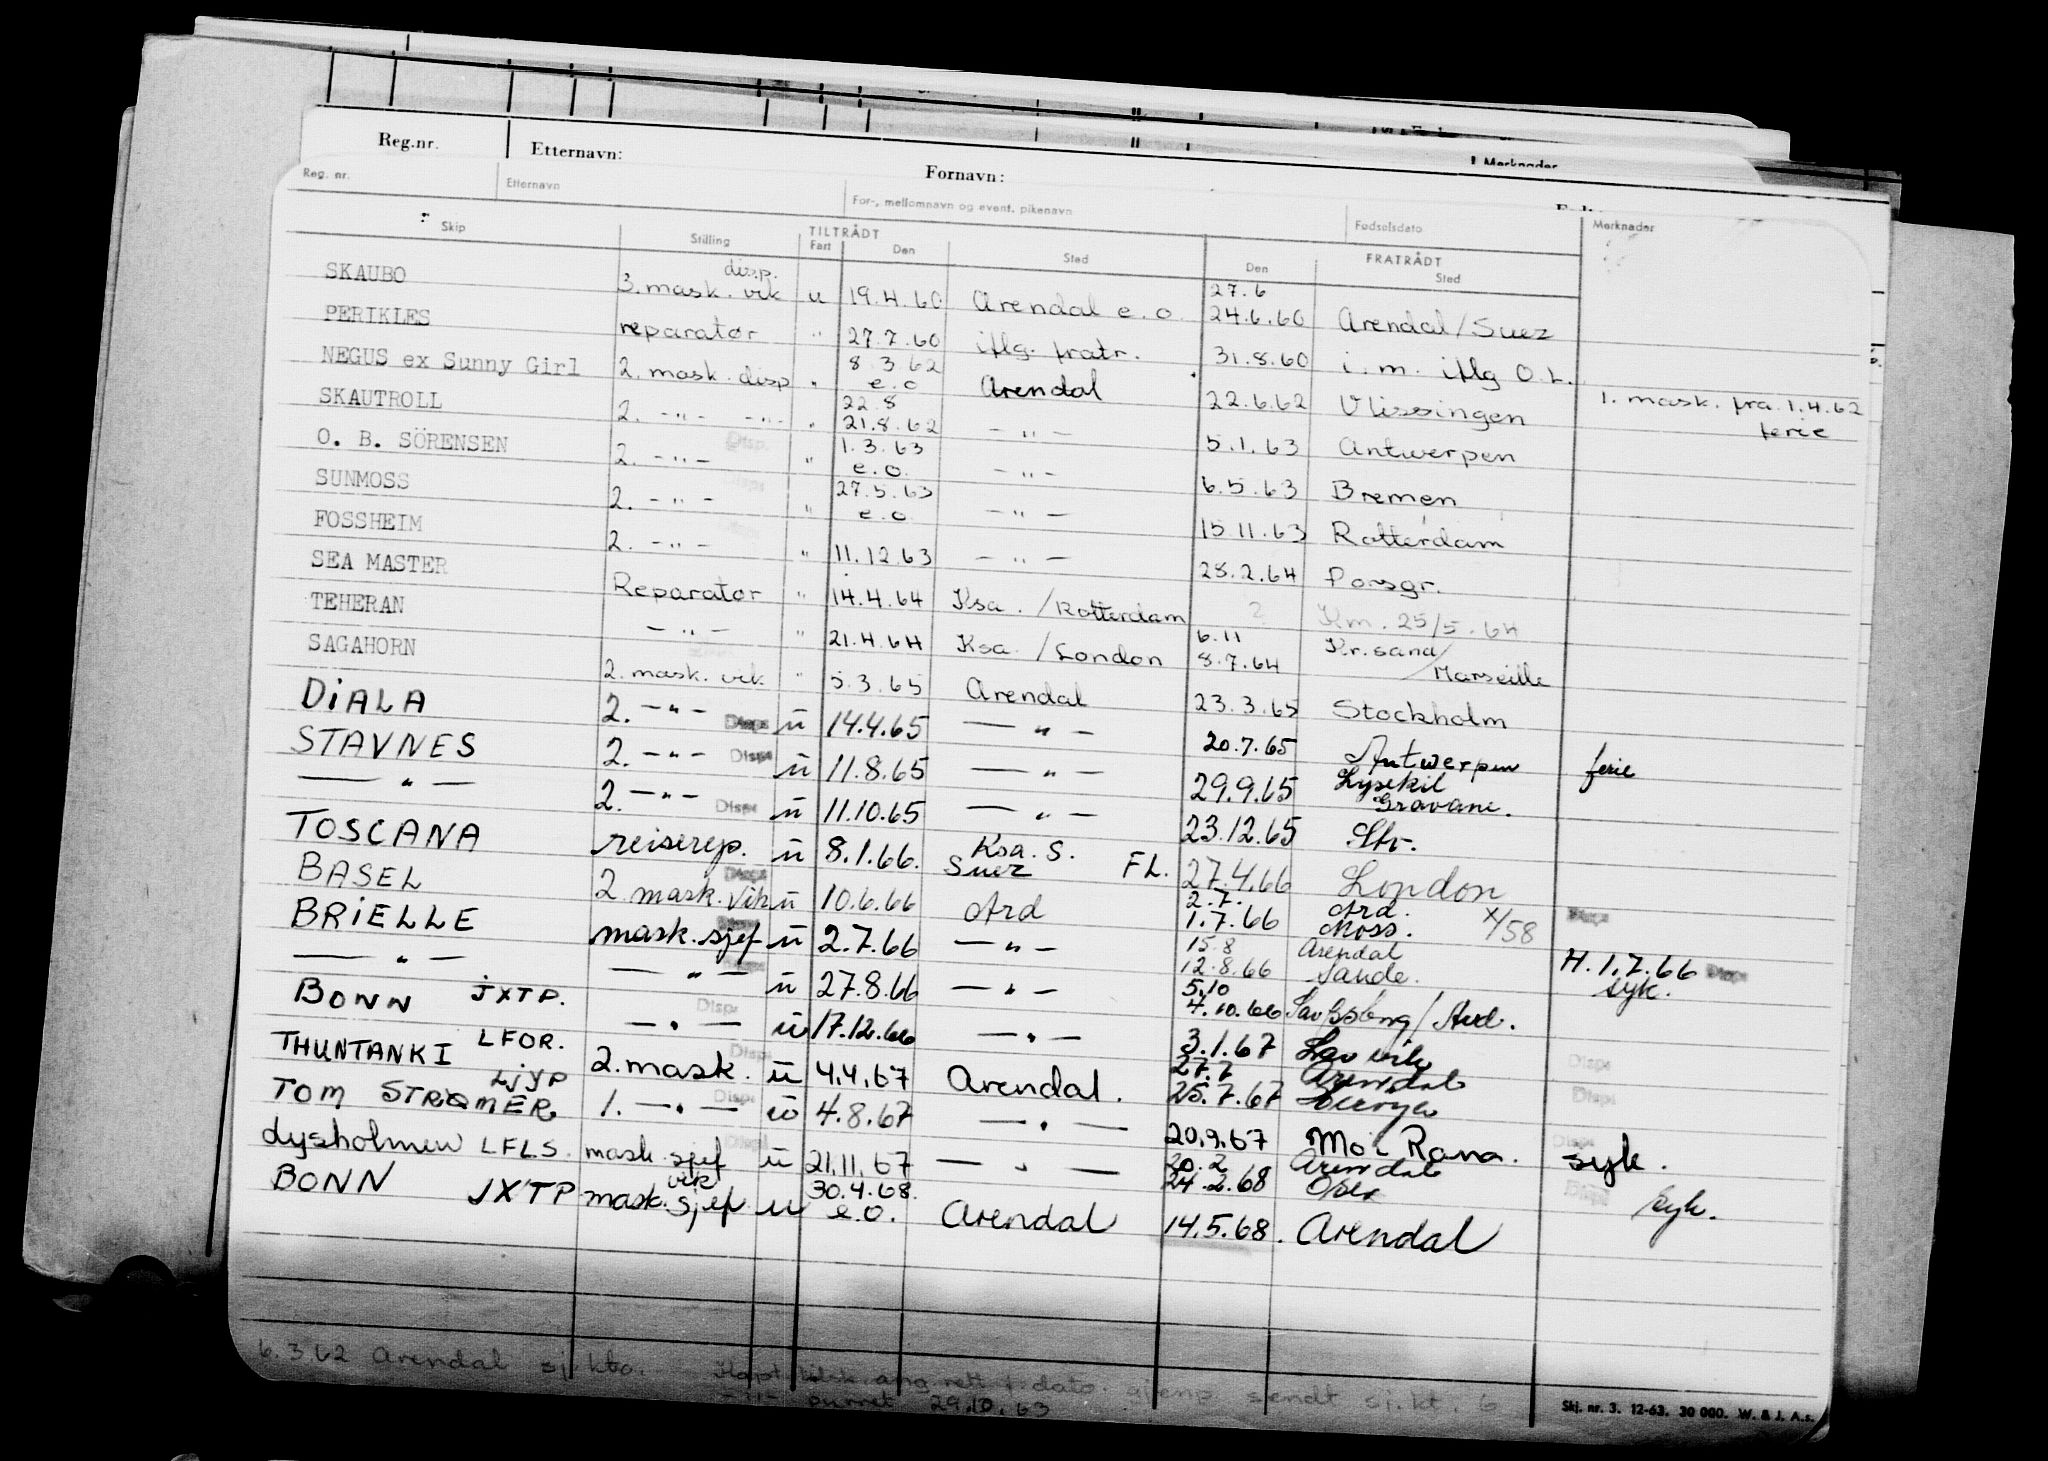 Reg.nr. Etternavn: Fornavn: Merknader
Reg. nr. Etternavn For-, mellomnavn og event. pikenavn Fødselsdato Merknader
Skip Stilling TILTRÅDT Fart Den Sted FRATRÅDT Den Sted
SKAUBO 3. mask. vik disp. u 19.4.60 Arendal e.o. 27.6 24.6.60 Arendal/Suez
PERIKLES reparatør " 27.7.60 iflg. fratr. 31.8.60 i.m. iflg O.L.
NEGUS ex Sunny Girl 2. mask. disp " 8.3.62 e.o Arendal 22.6.62 Vlissingen 1. mask. fra 1.4.62 ferie
SKAUTROLL 2. -"- -"- " 22.8 21.8.62 -"- 5.1.63 Antwerpen
O. B. SÖRENSEN 2. -"- Disp. " 1.3.63 e.o. -"- 6.5.63 Bremen
SUNMOSS 2. -"- Disp. " 27.5.63 e.o. -"- 15.11.63 Rotterdam
FOSSHEIM 2. -"- " 11.12.63 -"- 28.2.64 Porsgr.
SEA MASTER Reparatør " 14.4.64 Ksa. /Rotterdam ? Km. 25/5.64
TEHERAN -"- " 21.4.64 Ksa. /London 6.11 8.7.64 Kr.sand/Marseille
SAGAHORN 2. mask. vik. " 5.3.65 Arendal 23.3.65 Stockholm
DIALA 2. -"- Disp. u 14.4.65 -"- 20.7.65 Antwerpen ferie
STAVNES 2. -"- Disp. u 11.8.65 -"- 29.9.65 Lysekil Gravarne.
-"- 2. -"- Disp. u 11.10.65 -"- 23.12.65
TOSCANA reiserep. u 8.1.66. Ksa. S. Suez FL. 27.4.66 London
BASEL 2 mask. vik Disp. u 10.6.66 Ard 2.7. 1.7.66 Ard. Moss. x/58 Disp.
BRIELLE mask. sjef u 2.7.66 -"- 15.8 12.8.66 Arendal Sande. H. 1.7.66 Disp. syk.
-"- -"- u 27.8.66 -"- 5.10 4.10.66
BONN JXTP. Disp. -"- u 17.12.66 -"- 3.1.67 Disp.
THUNTANK I LFOR. 2. mask. Disp. u 4.4.67 Arendal. 27.7 25.7.67 Arendal Disp.
TOM STRØMER LJYP 1. -"- Disp. u 4.8.67 -"- 20.9.67 Moi Rana. Disp. syk.
dysholmen LFLS. mask. sjef u 21.11.67 -"- 20.2 24.2.68 Arendal Disp. syk.
BONN JXTP mask. sjef vik u 30.4.68. e.o. Arendal 14.5.68. Arendal
6.3.62 Arendal sj.kto. Kapt. tilsk. ang. rett f. dato. gjenp. sendt sj.kt. 6
-"- purret 29.10.63
Skj. nr. 3. 12-63. 30 000. W. & J. A.s.